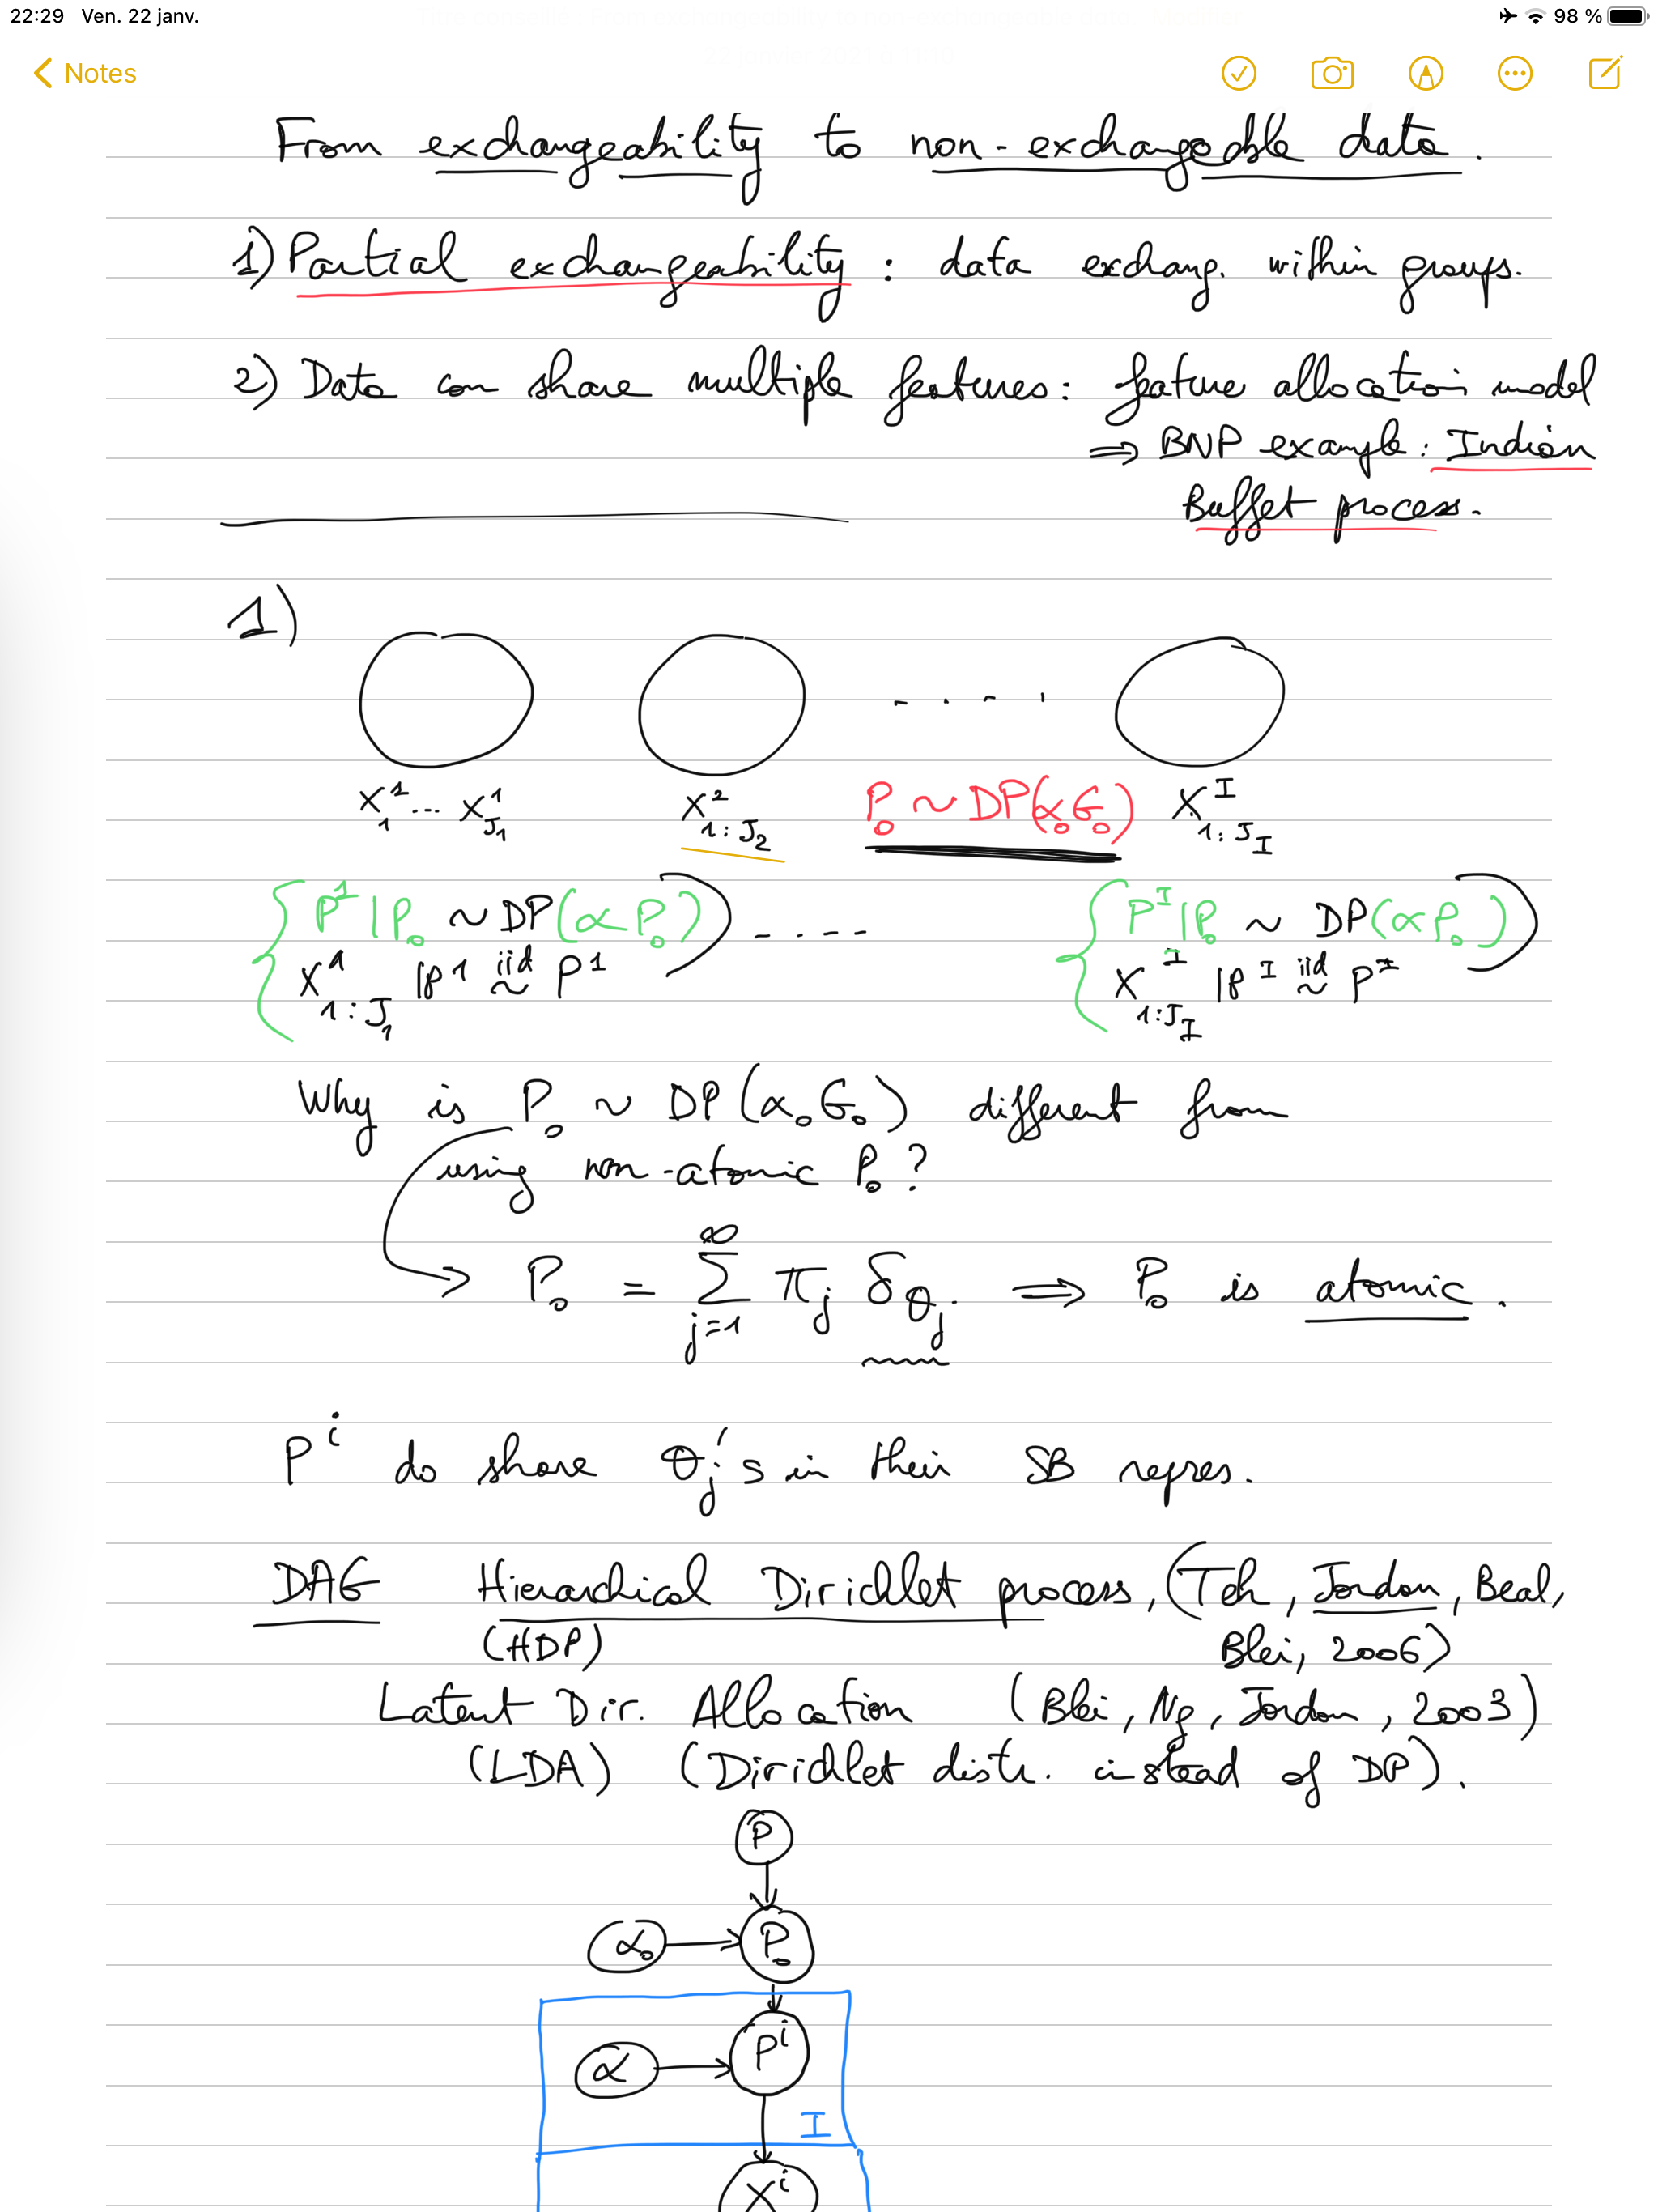 22:29 Ven. 22 janv. 98 %
Notes
From exchangeability to non-exchangeable data.
1) Partial exchangeability : data exchang. within groups.
2) Data can share multiple features : feature allocation model
⇒ BNP example : Indian
Buffet process.
1)
X₁¹ ... X¹_J₁ X²_1:J₂ .... P₀ ~ DP(α₀G₀) X^I_1:J_I
P¹|P₀ ~ DP(αP₀) .... P^I|P₀ ~ DP(αP₀)
X¹_1:J₁ |P¹ iid~ P¹ X^I_1:J_I |P^I iid~ P^I
Why is P₀ ~ DP(α₀G₀) different from
using non-atomic P₀ ?
→ P₀ = ∑_{j=1}^∞ π_j δ_θ_j ⇒ P₀ is atomic.
P^i do share θ_j's in their SB repres.
DAG Hierarchical Dirichlet process, (Teh, Jordan, Beal,
(HDP) Blei, 2006)
Latent Dir. Allocation (Blei, Ng, Jordan, 2003)
(LDA) (Dirichlet distr. instead of DP).
P
α₀ → P₀
α → P^i
I
X^i